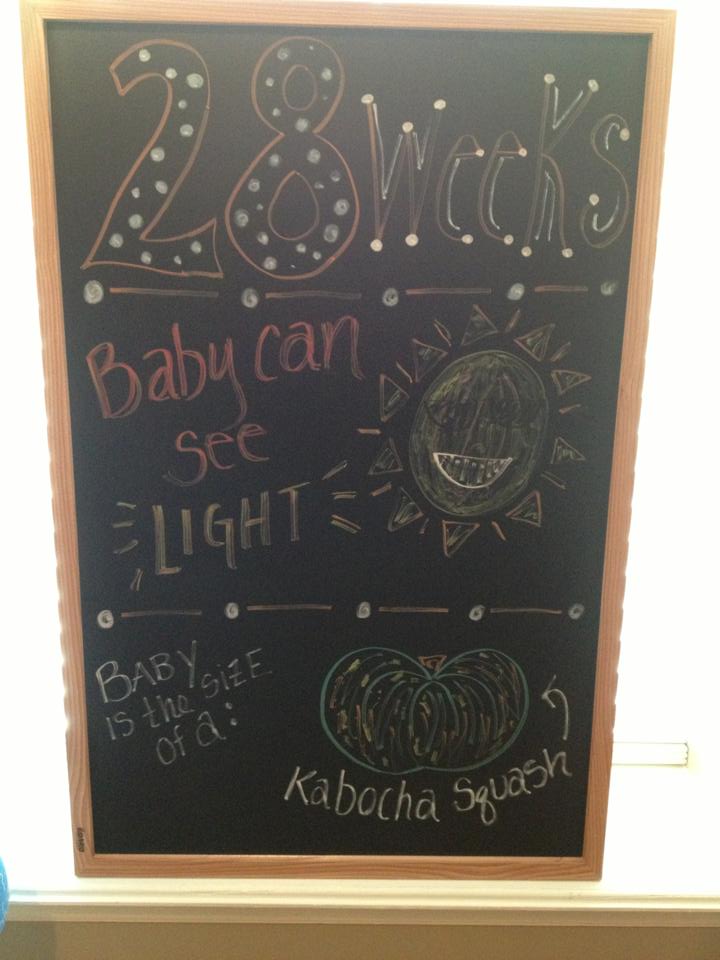 28 Weeks
Baby can
see
LIGHT
BABY
is the size
of a:
Kabocha Squash